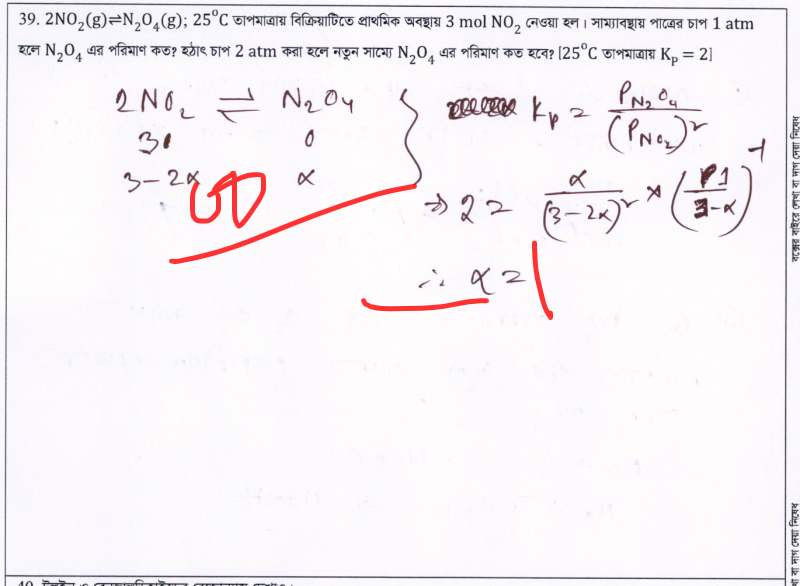 39. 2NO₂(g)⇌N₂O₄(g); 25°C তাপমাত্রায় বিক্রিয়াটিতে প্রাথমিক অবস্থায় 3 mol NO₂ নেওয়া হল। সাম্যাবস্থায় পাত্রের চাপ 1 atm
হলে N₂O₄ এর পরিমাণ কত? হঠাৎ চাপ 2 atm করা হলে নতুন সাম্যে N₂O₄ এর পরিমাণ কত হবে? [25°C তাপমাত্রায় Kₚ = 2]
2NO₂ ⇌ N₂O₄
3 0
3-2α α
Kp = P_N₂O₄ / (P_NO₂)²
⇒ 2 = α/(3-2α)² × (1/(3-α))⁻¹
∴ α =
বক্সের বাইরে লেখা বা দাগ দেয়া নিষেধ
বা দাগ দেয়া নিষেধ